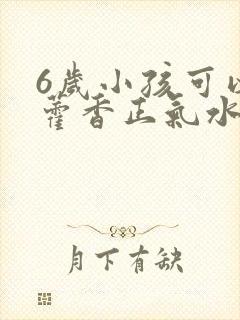 6歲小孩可以
藿香正氣水
月下有缺